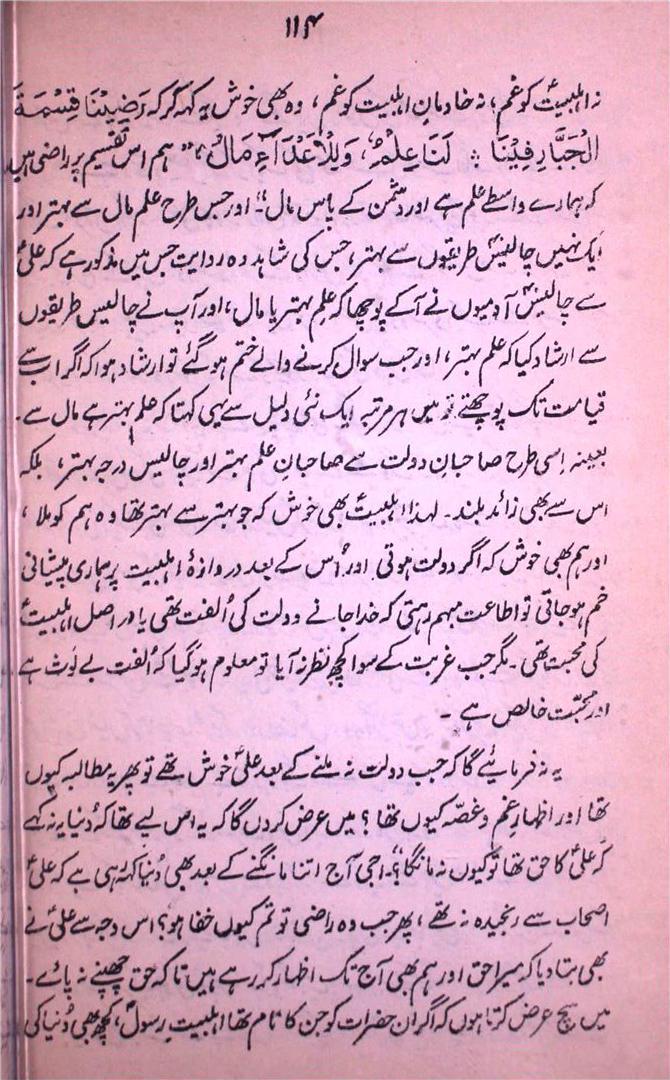 ۱۱۴
نہ اہلبیتؑ کو غم، نہ خادمانِ اہلبیت کو غم، وہ بھی خوش یہ کہہ کر کہ رَضِیْنَا قِسْمَۃَ
الْجَبَّارِ فِیْنَا ؞ لَنَا عِلْمٌ، وَلِلْاَعْدَاءِ مَالٌ،" ہم اس تقسیم پر راضی ہیں
کہ ہمارے واسطے علم ہے اور دشمن کے پاس مال"۔ اور جس طرح علم مال سے بہتر اور
ایک نہیں چالیسؔ طریقوں سے بہتر، جس کی شاہد وہ روایت جس میں مذکور ہے کہ علیؑ
سے چالیسؔ آدمیوں نے آکے پوچھا کہ علم بہتر یا مال، اور آپ نے چالیس طریقوں
سے ارشاد کیا کہ علم بہتر، اور جب سوال کرنے والے ختم ہوگئے تو ارشاد ہوا کہ اگر اب سے
قیامت تک پوچھتے تو میں ہر مرتبہ ایک نئی دلیل سے یہی کہتا کہ علم بہتر ہے مال سے۔
بعینہٖ اِسی طرح صاحبانِ دولت سے صاحبانِ علم بہتر اور چالیس درجہ بہتر، بلکہ
اس سے بھی زائد بلند۔ لہٰذا اہلبیتؑ بھی خوش کہ جو بہتر سے بہتر تھا وہ ہم کو ملا،
اور ہم بھی خوش کہ اگر دولت ہوتی اور اُس کے بعد دروازۂ اہلبیت پر ہماری پیشانی
خم ہوجاتی تو اطاعت مبہم رہتی کہ خدا جانے دولت کی اُلفت تھی یا در اصل اہلبیتؑ
کی محبت تھی۔ مگر جب غربت کے سوا کچھ نظر نہ آیا تو معلوم ہوگیا کہ اُلفت بے لوث ہے
اور محبّت خالص ہے۔
یہ نہ فرمایئے گا کہ جب دولت نہ ملنے کے بعد علیؑ خوش تھے تو پھر یہ مطالبہ کیوں
تھا اور اظہارِ غم و غصّہ کیوں تھا؟ میں عرض کردوں گا کہ یہ اس لیے تھا کہ دُنیا یہ نہ کہے
کہ علیؑ کا حق تھا تو کیوں نہ مانگا"؟۔ اجی آج اتنا مانگنے کے بعد بھی دُنیا کہتی ہے کہ علیؑ
اصحاب سے رنجیدہ نہ تھے، پھر جب وہ راضی تو تم کیوں خفا ہو؟ اس وجہ سے علیؑ نے
بھی بتا دیا کہ میرا حق اور ہم بھی آج تک اظہار کر رہے ہیں تاکہ حق چھپنے نہ پائے۔
میں سچ عرض کرتا ہوں کہ اگر ان حضرات کو جن کا نام تھا اہلبیتِ رسولؐ، کچھ بھی دُنیا کی